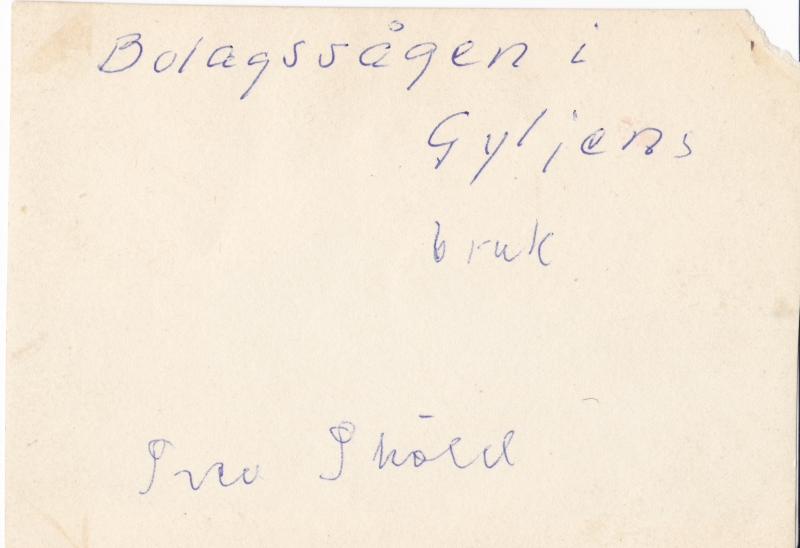 Bolagssågen i
Gyljens
bruk
Sköld